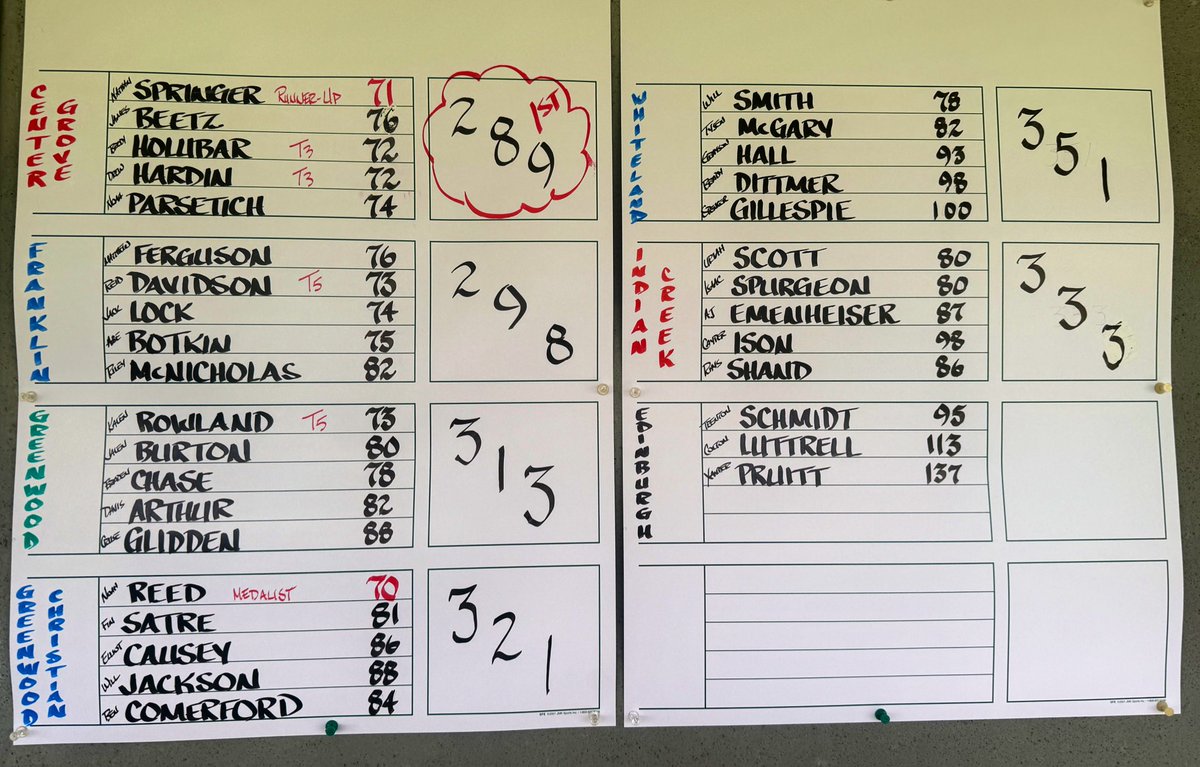 CENTER GROVE
NATHAN SPRINGER RUNNER-UP 71
JAMES BEETZ 76
BRODY HOLLIBAR T3 72
DREW HARDIN T3 72
NOAH PARSETICH 74
289 1ST
FRANKLIN
MATTHEW FERGUSON 76
REID DAVIDSON T5 73
LOCK 74
ABE BOTKIN 75
RILEY McNICHOLAS 82
298
GREENWOOD
KALEN ROWLAND T5 73
JALEN BURTON 80
BRADEN CHASE 78
DAVIS ARTHUR 82
GLIDDEN 88
313
GREENWOOD CHRISTIAN
NOAH REED MEDALIST 70
FIN SATRE 81
CAUSEY 86
WILL JACKSON 88
BEN COMERFORD 84
321
WHITELAND
WILL SMITH 78
McGARY 82
HALL 93
BRODY DITTMER 98
GEORGE GILLESPIE 100
351
INDIAN CREEK
SCOTT 80
ISAAC SPURGEON 80
AJ EMENHEISER 87
COOPER ISON 98
SHAND 86
333
EDINBURGH
TRENTON SCHMIDT 95
COLTON LUTTRELL 113
XANDER PRUITT 137